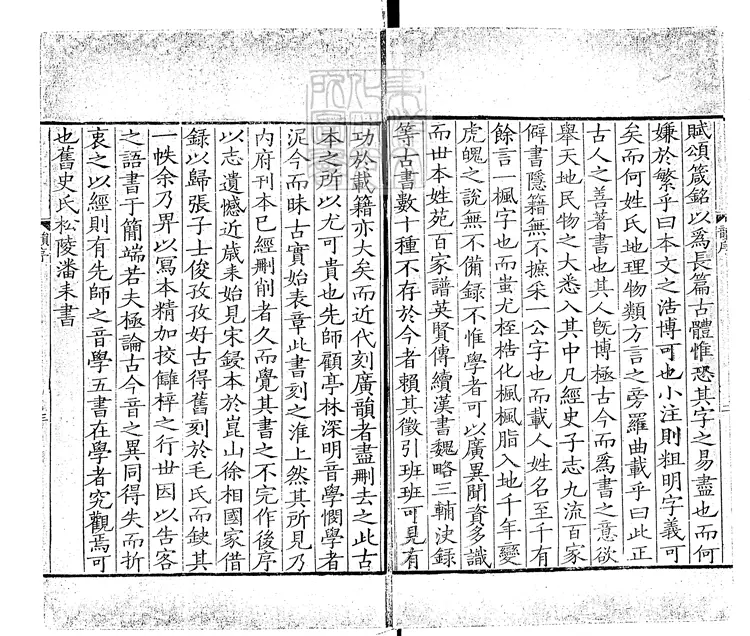 賦頌箴銘以爲長篇古體惟恐其字之易盡也而何
嫌於繁乎曰本文之浩博可也小注則粗明字義可
矣而何姓氏地理物類方言之旁羅曲載乎曰此正
古人之善著書也其人旣博極古今而爲書之意欲
舉天地民物之大悉入其中凡經史子志九流百家
僻書隱籍無不摭采一公字也而載人姓名至千有
餘言一楓字也而蚩尤桎梏化楓楓脂入地千年變
虎魄之說無不備録不惟學者可以廣異聞資多識
而世本姓苑百家譜英賢傳續漢書魏略三輔決録
等古書數十種不存於今者賴其徵引班班可見有
功於載籍亦大矣而近代刻廣韻者盡刪去之此古
本之所以尤可貴也先師顧亭林深明音學憫學者
泥今而昧古實始表章此書刻之淮上然其所見乃
内府刊本已經刪削者久而覺其書之不完作後序
以志遺憾近歲耒始見宋鋟本於崑山徐相國家借
録以歸張子士俊孜孜好古得舊刻於毛氏而缺其
一帙余乃畀以寫本精加挍讎梓之行世因以告客
之語書于簡端若夫極論古今音之異同得失而折
衷之以經則有先師之音學五書在學者究觀焉可
也舊史氏松陵潘耒書